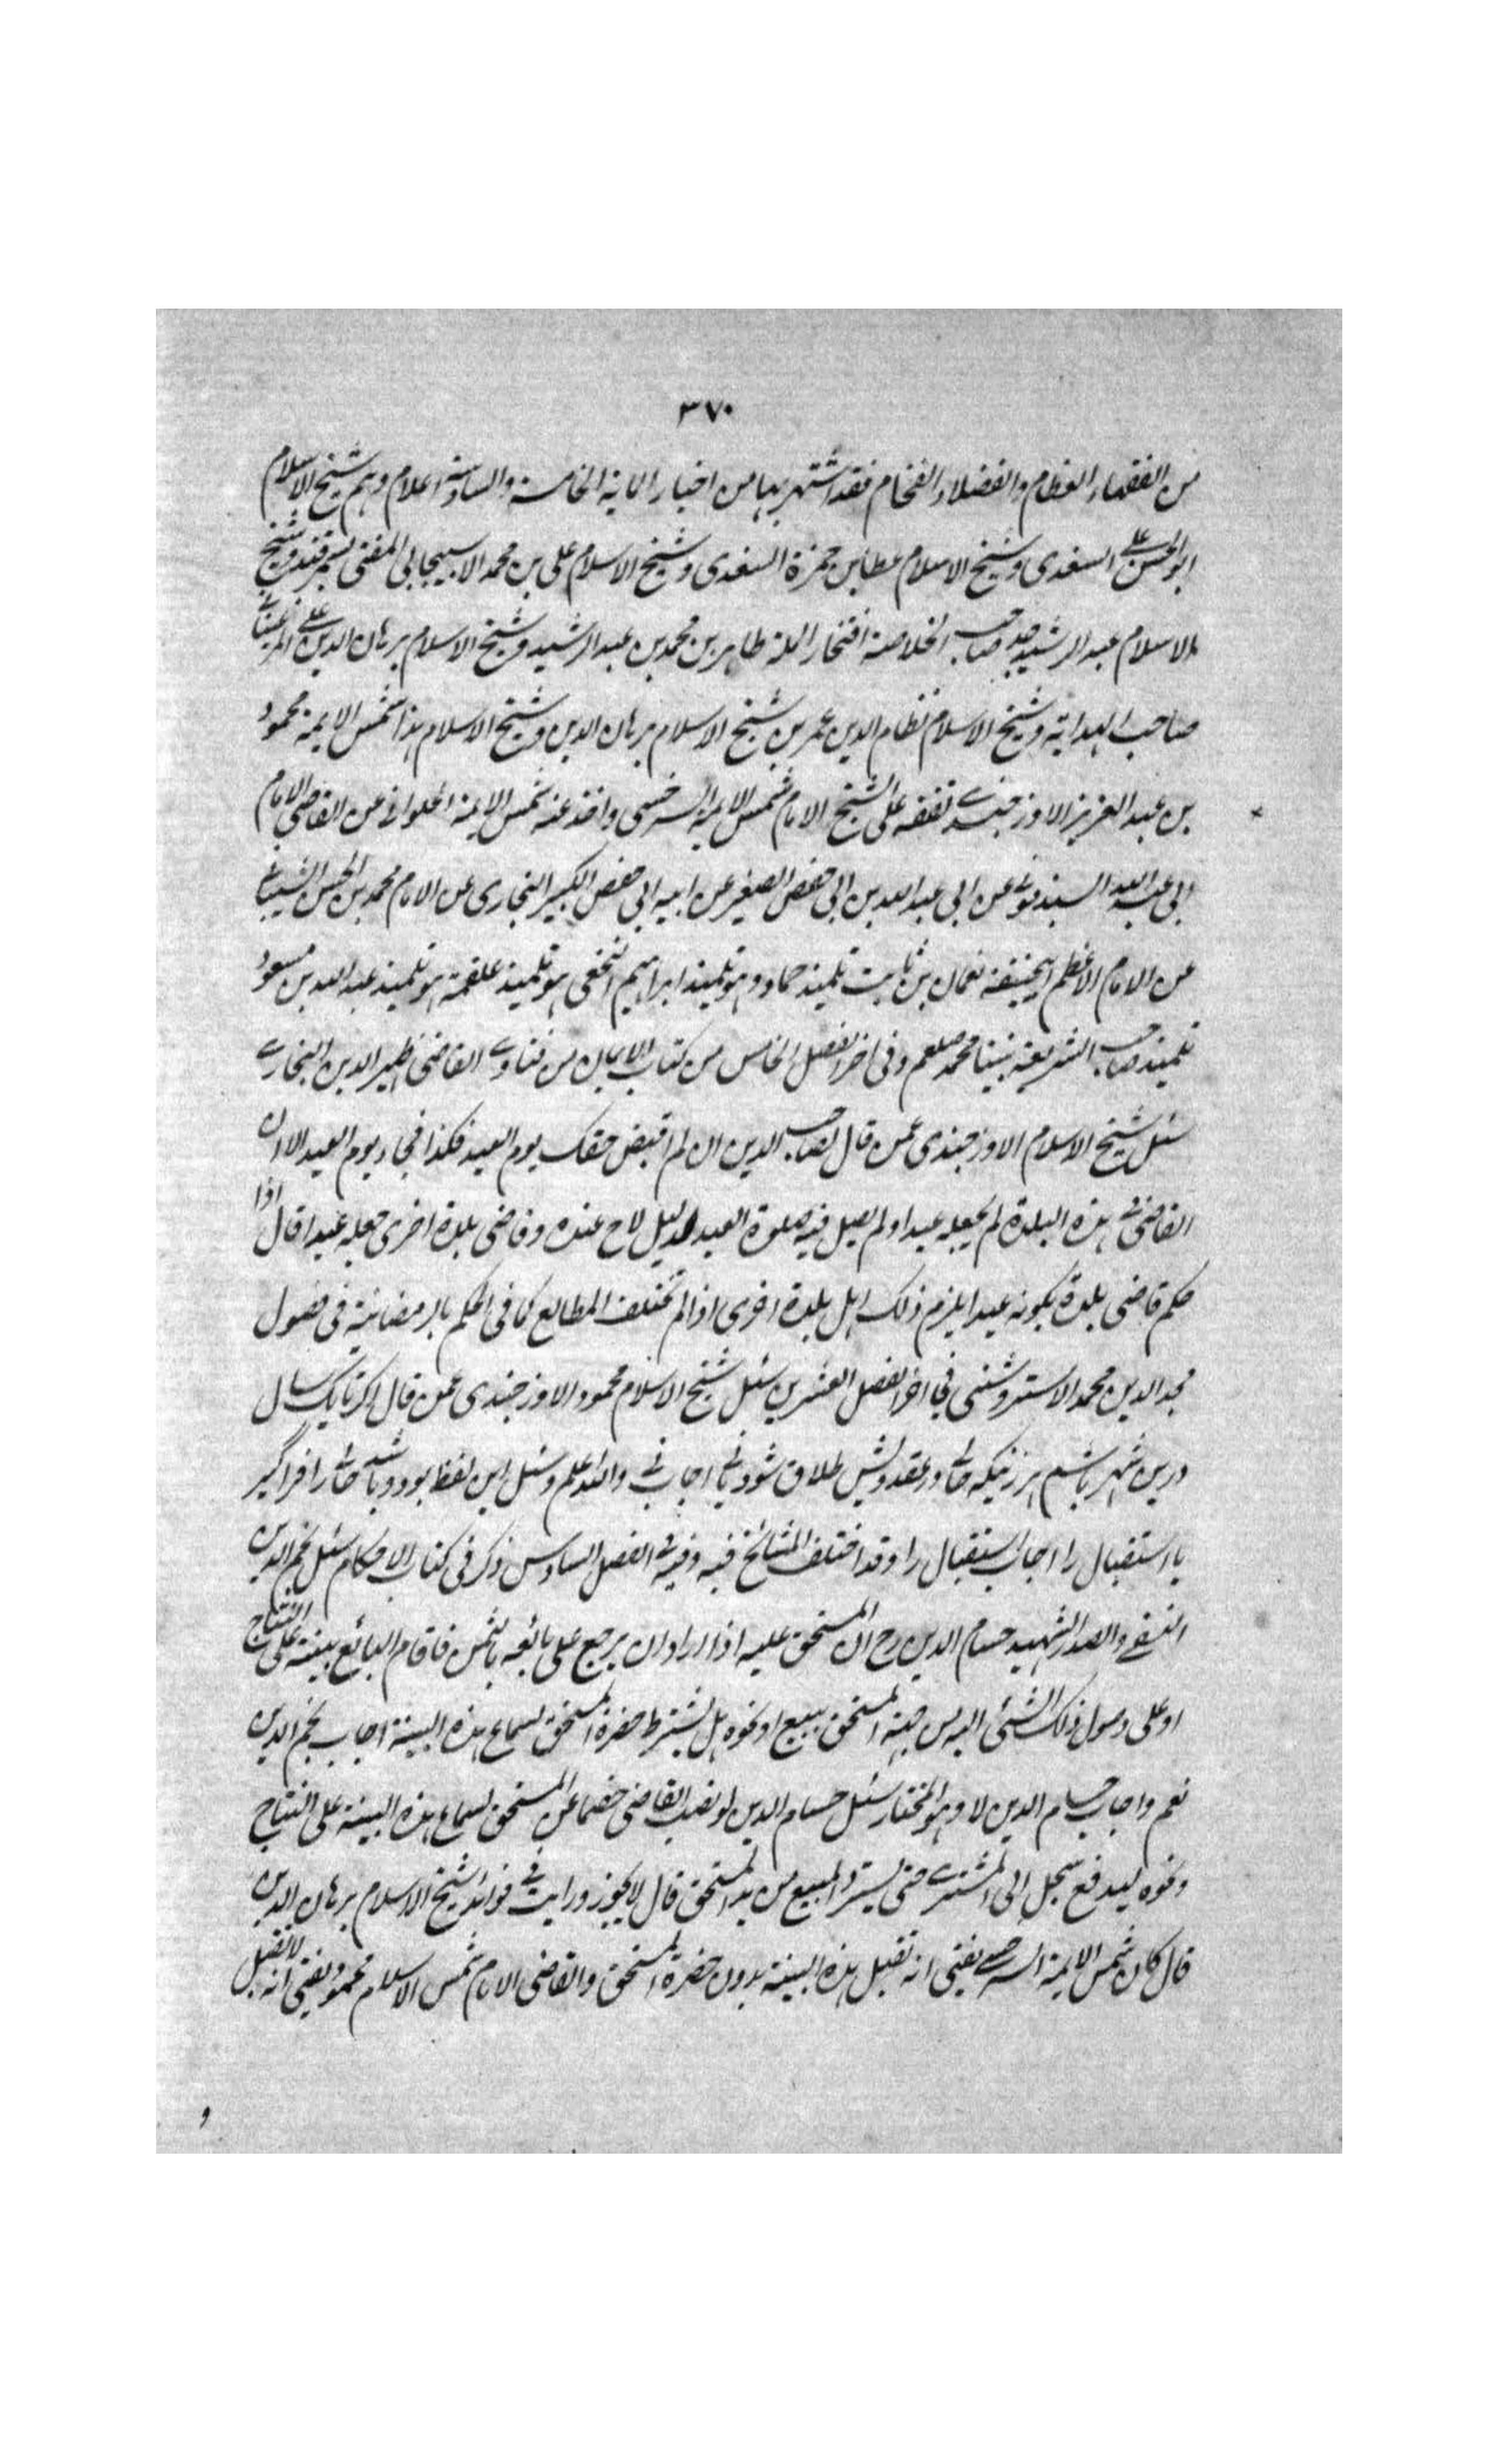 ٣٧٠
من الفقهاء العظام والفضلاء الفخام فقد اشتهر بها من اخيار المایة الخامسة والسادسة اعلام وهم شيخ الاسلام
ابو الحسن على السغدى وشيخ الاسلام عطا بن حمزة السغدى وشيخ الاسلام على بن محمد الاسبيجابى المفتى بسمرقند وشيخ
الاسلام عبد الرشيد جد صاحب الخلاصة افتخار الملة طاهر بن محمد بن عبد الرشيد وشيخ الاسلام برهان الدين على المرغينانى
صاحب الهداية وشيخ الاسلام نظام الدين عمر بن شيخ الاسلام برهان الدين وشيخ الاسلام هذا شمس الايمة محمود
بن عبد العزيز الاوزجندے تفقه على الشيخ الامام شمس الايمة السرخسى واخذ عنه شمس الايمة الحلوانى عن القاضى الامام
ابى على عبد الله السبذمونى عن ابى عبد الله بن ابى حفص الصغير عن ابيه ابى حفص الكبير البخارى عن الامام محمد بن الحسن الشيبانى
عن الامام الاعظم ابيحنيفة نعمان بن ثابت تلميذ حماد وهو تلميذ ابراهيم النخعى هو تلميذ علقمة هو تلميذ عبد الله بن مسعود
تلميذ صاحب الشريعة نبينا محمد صلعم وفى اخر الفصل الخامس من كتاب الايمان من فتاوے القاضى ظهير الدين البخارے
سئل شيخ الاسلام الاوزجندى عمن قال لصاحب الدين ان لم اقبض حقك يوم العيد فكذا فجاء يوم العيد الا ان
القاضى فى هذه البلدة لم يجعله عيدا ولم يصل فيه صلوة العيد لدليل لاح عنده وقاضى بلدة اخرى جعله عيدا قال اذا
حكم قاضى بلدة بكونه عيدا يلزم ذلك اهل بلدة اخرى اذا لم تختلف المطالع كما فى الحكم بالرمضانية فى فصول
مجد الدين محمد الاستروشنى فى اخر الفصل العشرين سئل شيخ الاسلام محمود الاوزجندى عمن قال اگر تا يك سال
درين شهر باشم هر زنيكه حالى در عقد ويش طلاق شود نے اجاب نے والله اعلم وسئل اين لفظ بود وباشد حالى را فراگير
يا استقبال را اجاب استقبال را وقد اختلف المشائخ فيه وفيه فى الفصل السادس ذكر فى كتاب الاحكام سئل نجم الدين
النسفے والصدر الشهيد حسام الدين رح ان المستحق عليه اذا اراد ان يرجع على بائعه بالثمن فاقام البائع بينة على النتاج
او على وصول ذلك الشئ اليه من جهة المستحق ببيع او نحوه هل يشترط حضرة المستحق لسماع هذه البينة اجاب نجم الدين
نعم واجاب حسام الدين لا وهو المختار سئل حسام الدين لو نصب القاضى خصما عن المستحق لسماع هذه البينة على النتاج
ونحوه ليدفع سجل الى المشترے حتى يسترد المبيع من يد المستحق قال لا يجوز ورايت فى فوائد شيخ الاسلام برهان الدين
قال كان شمس الايمة السرخسے يفتى انه تقبل هذه البينة بدون حضرة المستحق والقاضى الامام شمس الاسلام محمود يفتى انه لا تقبل
و